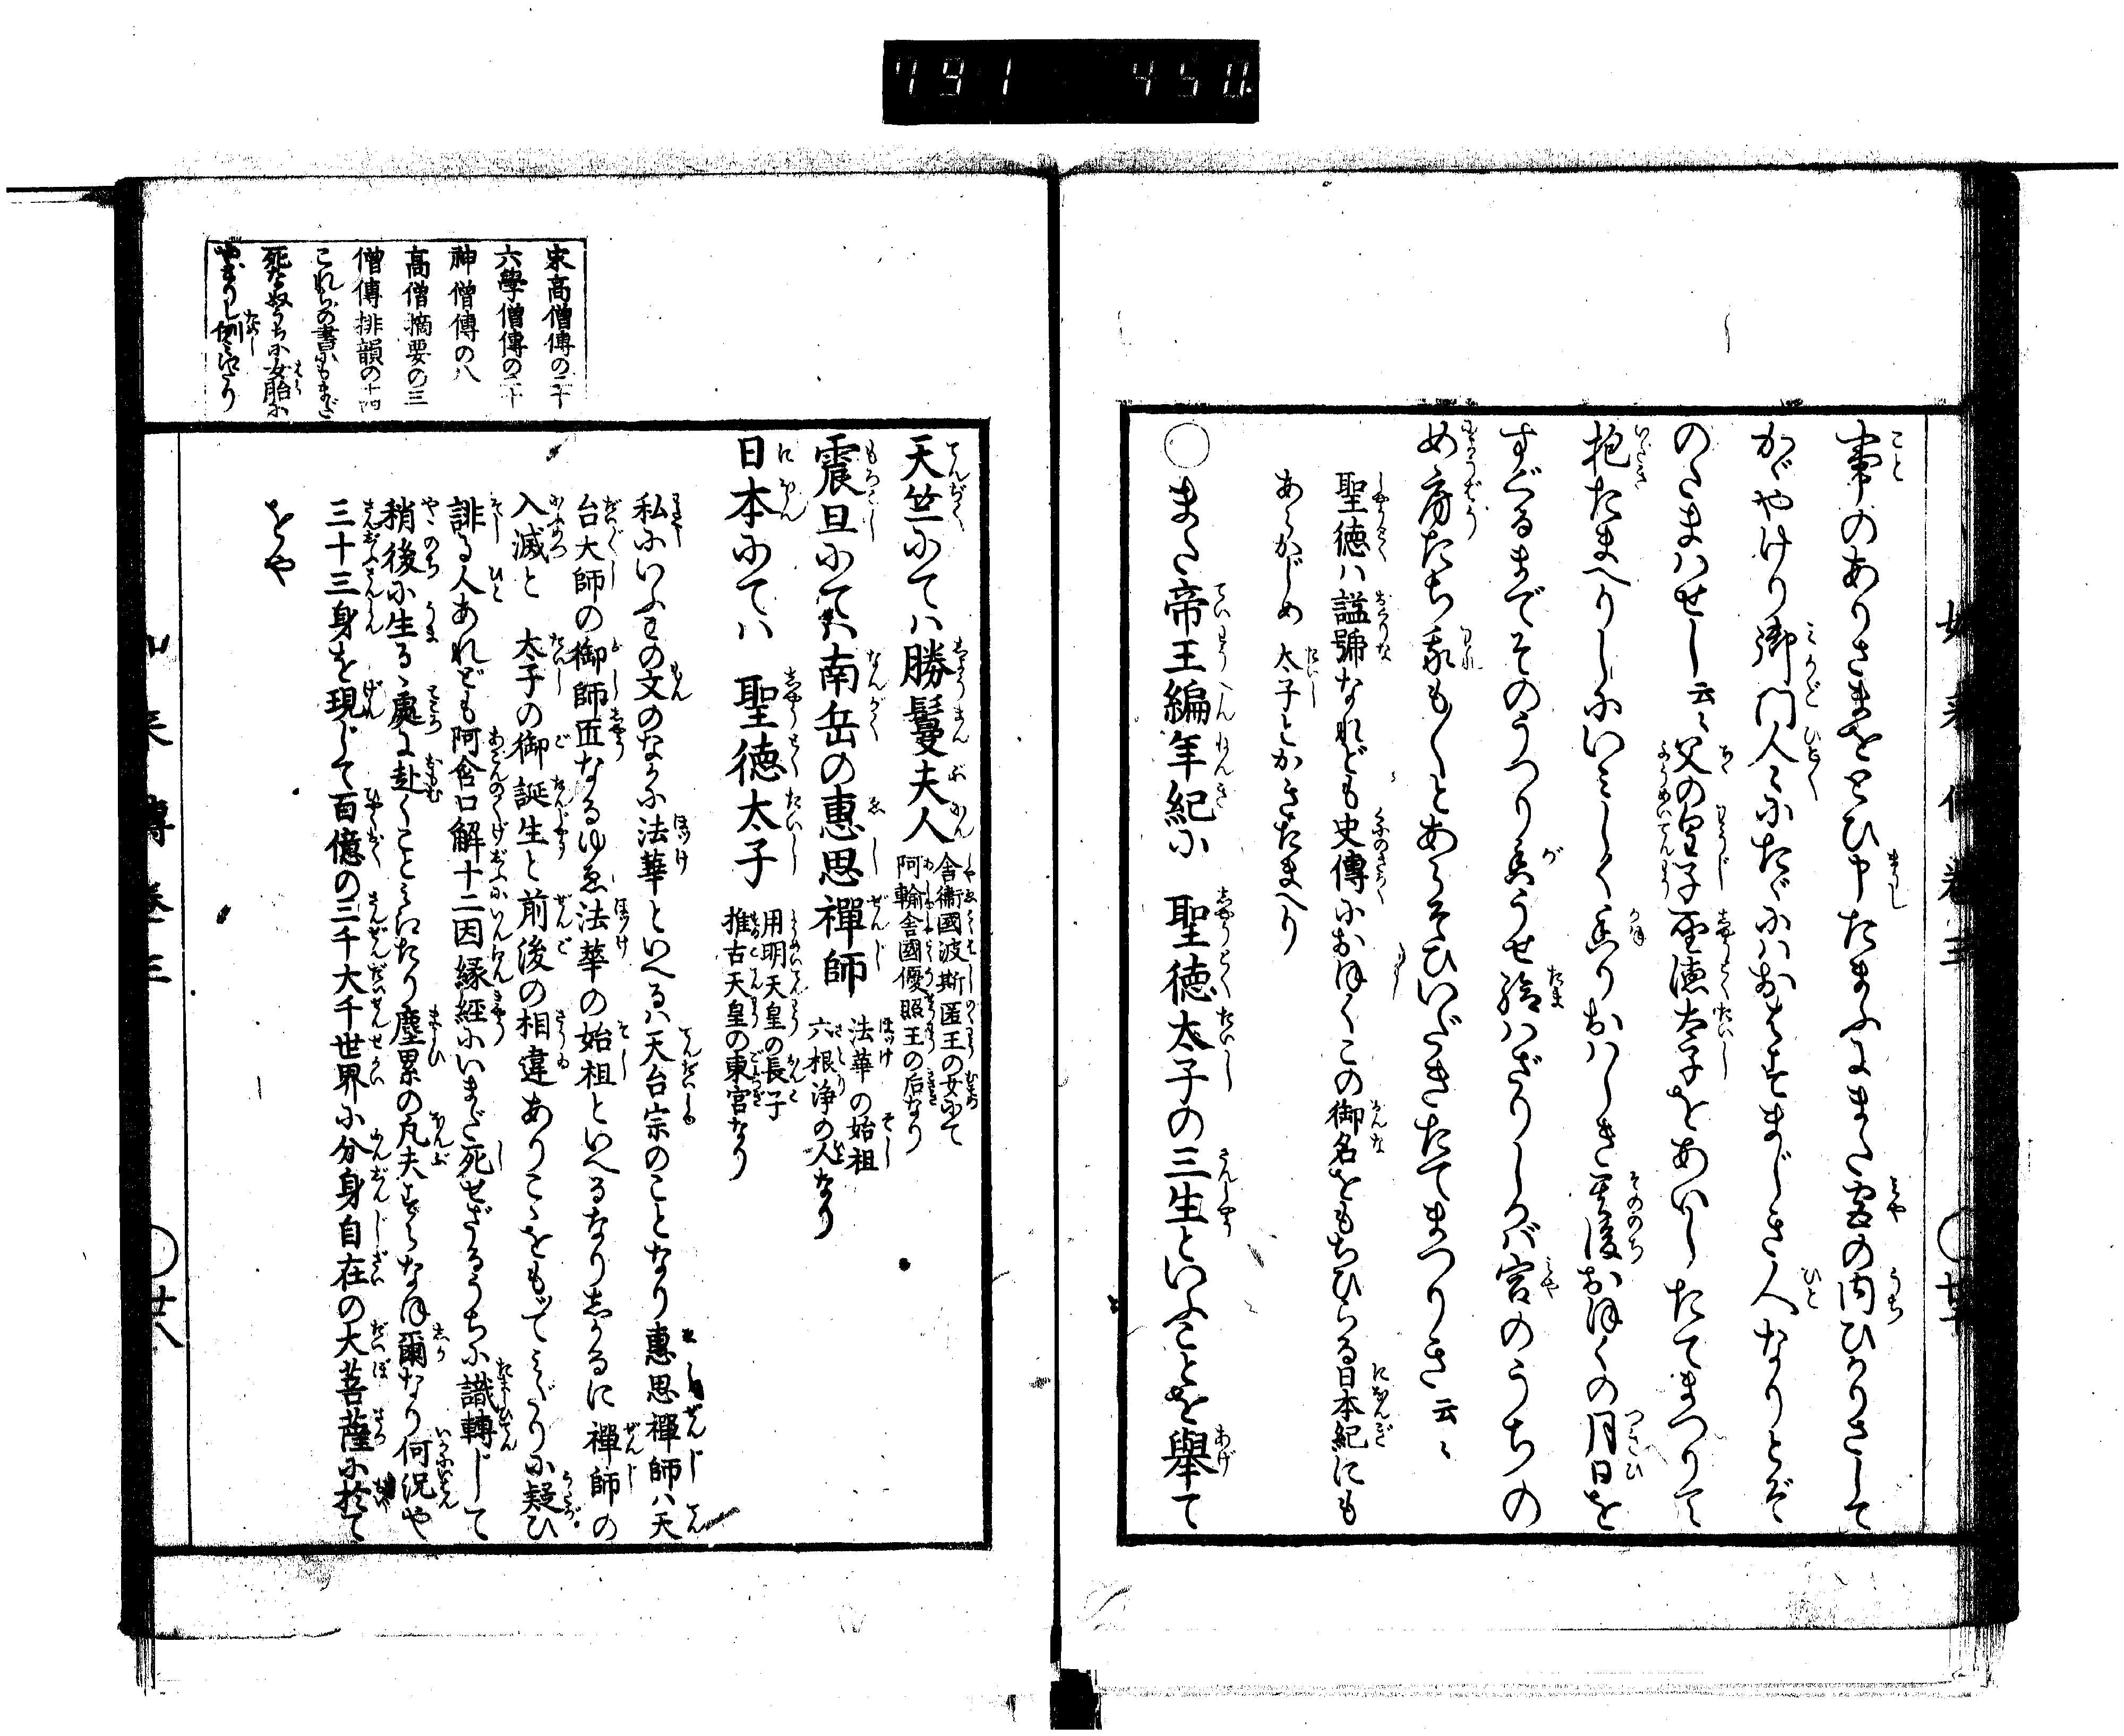 791 450
事のありさまをとひ申たまふにまた宮の内ひかりさして
かゞやけり御門人々にたゞにハおはすまじき人なりとぞ
のたまハせし云々父の皇子聖徳太子をあいしたてまつりて
抱たまへりしにいみしくかうばしき其後おほくの月日を
すぐるまでそのうつり香うせ給ハざりしかバ宮のうちの
め房たち我も〱とあらそひいだきたてまつりき云々
聖徳ハ謚號なれども史傳におほくこの御名をもちひらる日本紀にも
あらかじめ 太子とかきたまへり
○また帝王編年紀に 聖徳太子の三生といふことを舉て
如来傳巻三
宋高僧傳の二十
六學僧傳の二十
神僧傳の八
高僧摘要の三
僧傳排韻の十四
これらの書にもまだ
死なぬうちに女胎に
やどりし例えたり
天竺にてハ勝鬘夫人 舎衛國波斯匿王の女にて
阿輸舎國優照王の后なり
震旦にてハ南岳の惠思禪師 法華の始祖
六根浄の人なり
日本にてハ 聖徳太子 用明天皇の長子
推古天皇の東宮なり
私にいふこの文のなかに法華といへるハ天台宗のことなり惠思禪師ハ天
台大師の御師匠なるゆゑ法華の始祖といへるなりしかるに禪師の
入滅と 太子の御誕生と前後の相違ありこゝをもてみだりに疑ひ
誹る人あれども阿含口解十二因縁經にいまだ死せざるうちに識轉じて
稍後に生るゝ處に赴くことみえたり塵累の凡夫すらなほ爾なり何況や
三十三身を現じて百億の三千大千世界に分身自在の大菩薩に於て
をや
如来傳巻三
○廿八